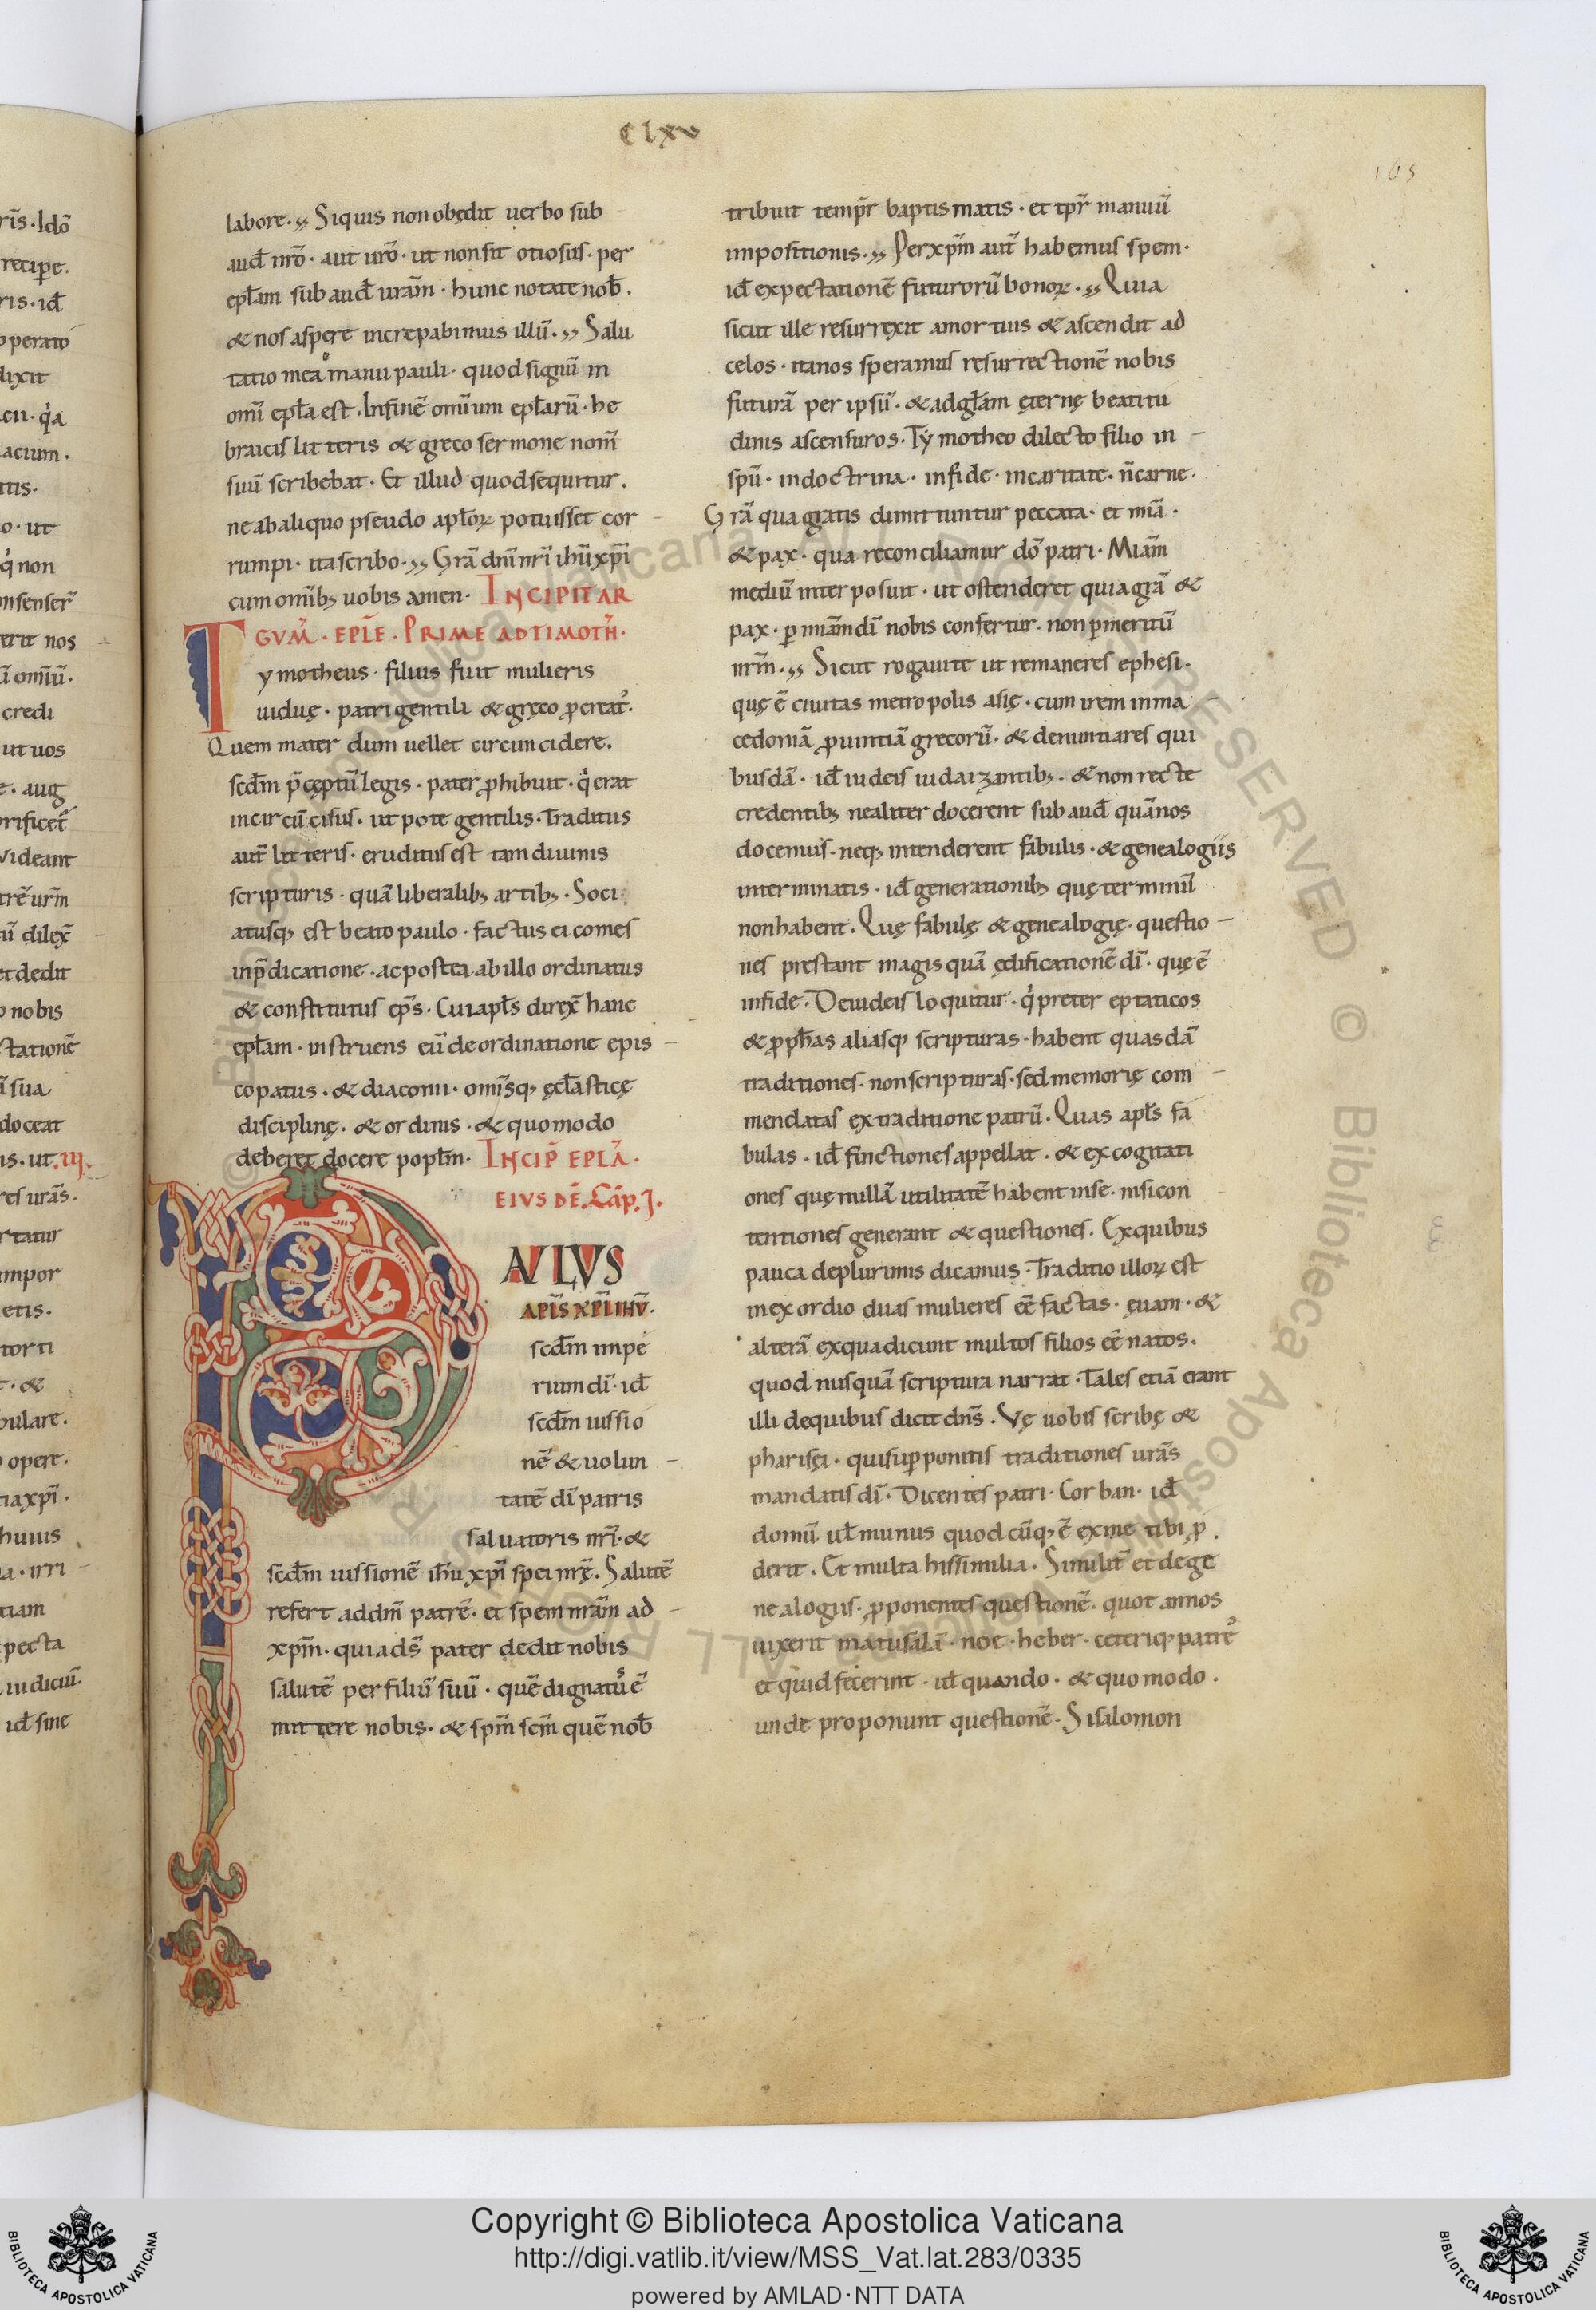 CLXV
165
labore.,, Siquis non obędit uerbo sub
aud̄ nr̄o· aut ur̄o· ut non sit otiosus· per
ep̄lam sub aud̄ urām· hunc notate nob̄.
& nos aspere increpabimus illū.,, Salu
tatio mea manu pauli· quod signū in
om̄i ep̄la est. Infinē om̄ium ep̄larū· he
braicis litteris & greco sermone nom̄
suū scribebat. Et illud quod sequitur.
ne ab aliquo pseudo ap̄loꝝ potuisset cor
rumpi· ita scribo.,, Grā dn̄i nr̄i ih̄u xp̄i
cum om̄ibꝫ uobis amen· INCIPIT AR
GVM̄. EPL̄E. PRIME AD TIMOTH̄·
Tymotheus· filius fuit mulieris
uiduę· patri gentili & gręco ꝓcreat᾿.
Quem mater dum uellet circuncidere.
scd̄m p̄cęptū legis· pater ꝓhibuit· q̇ erat
incircūcisus· ut pote gentilis. Traditus
aut̄ litteris· eruditus est tam diuinis
scripturis· quā liberalibꝫ artibꝫ· Soci
atusqꝫ est beato paulo· factus ei comes
inp̄dicatione· ac postea ab illo ordinatus
& constitutus ep̄s· Cui ap̄ls direx̄ hanc
ep̄lam· instruens eū de ordinatione epis
copatus· & diaconii· om̄isqꝫ ęcl̄asticę
disciplinę· & ordinis· & quomodo
deberet docere popl̄m· INCIP̄ EPLA·
EIVS DĒ. Cāp. I.
PAVLVS
APL̄S XP̄I IHV̄·
scd̄m impe
rium dī· id̄
scd̄m iussio
nē & uolun
tatē dī patris
saluatoris nr̄i· &
scd̄m iussionē ih̄u xp̄i spei nr̄ę. Salutē
refert ad dm̄ patrē· et spem nrām ad
xp̄m· quia ds̄ pater dedit nobis
salutē per filiū suū· quē dignatus ē
mittere nobis· & sp̄m sc̄m quē nob̄
tribuit temp̄r baptismatis· et tp̄r manuū
impositionis.,, Per xp̄m aut̄ habemus spem·
id̄ expectationē futurorū bonoꝝ·,, Quia
sicut ille resurrexit amortuis & ascendit ad
celos· ita nos speramus resurrectionē nobis
futurā per ipsū· & ad gl̄am ęternę beatitu
dinis ascensuros. Tymotheo dilecto filio in
spū· in doctrina· in fide· in caritate· n̄ carne·
Grā qua gratis dimittuntur peccata· et mīa·
& pax· qua reconciliamur dō patri· Mīam
mediū interposuit· ut ostenderet quia grā &
pax· ꝑ mīam dī nobis confertur· non ꝑ meritū
nrm̄.,, Sicut rogaui te ut remaneres ephesi·
quę ē ciuitas metropolis asię· cum irem in ma
cedoniā ꝓuintiā grecorū· & denuntiares qui
busdā· id̄ iudeis iudaizantibꝫ· & non recte
credentibꝫ ne aliter docerent sub aud̄ quā nos
docemus· neqꝫ intenderent fabulis· & genealogiis
interminatis· id̄ generationibꝫ quę terminū
non habent. Quę fabulę & genealogię· questio
nes prestant magis quā ędificationē dī· quę ē
in fide· De iudeis loquitur· q̇ preter eptaticos
& ꝓphas aliasqꝫ scripturas· habent quasdā
traditiones· non scripturas· sed memorię com
mendatas ex traditione patrū. Quas ap̄ls fa
bulas· id̄ finctiones appellat· & excogitati
ones quę nullā utilitatē habent in se· nisi con
tentiones generant & questiones. Ex quibus
pauca de plurimis dicamus· Traditio illoꝝ est
in exordio duas mulieres eē factas· ęuam· &
alterā ex qua dicunt multos filios eē natos.
quod nusquā scriptura narrat· Tales etiā erant
illi de quibus dicit dn̄s. Vę uobis scribę &
pharisęi· qui supponitis traditiones urās
mandatis dī· Dicentes patri· Corban· id̄
domū ul̄ munus quodcūqꝫ ē ex me tibi ꝓ
derit. Et multa his similia. Similit̄ et de ge
nealogiis· ꝓponentes questionē· quot annos
uixerit matusalā· noe· heber· ceteriqꝫ patre᾿
et quid fecerint· ul̄ quando· & quomodo.
unde proponunt questionē. Si salomon
Copyright © Biblioteca Apostolica Vaticana
http://digi.vatlib.it/view/MSS_Vat.lat.283/0335
powered by AMLAD·NTT DATA
BIBLIOTECA APOSTOLICA VATICANA
BIBLIOTECA APOSTOLICA VATICANA